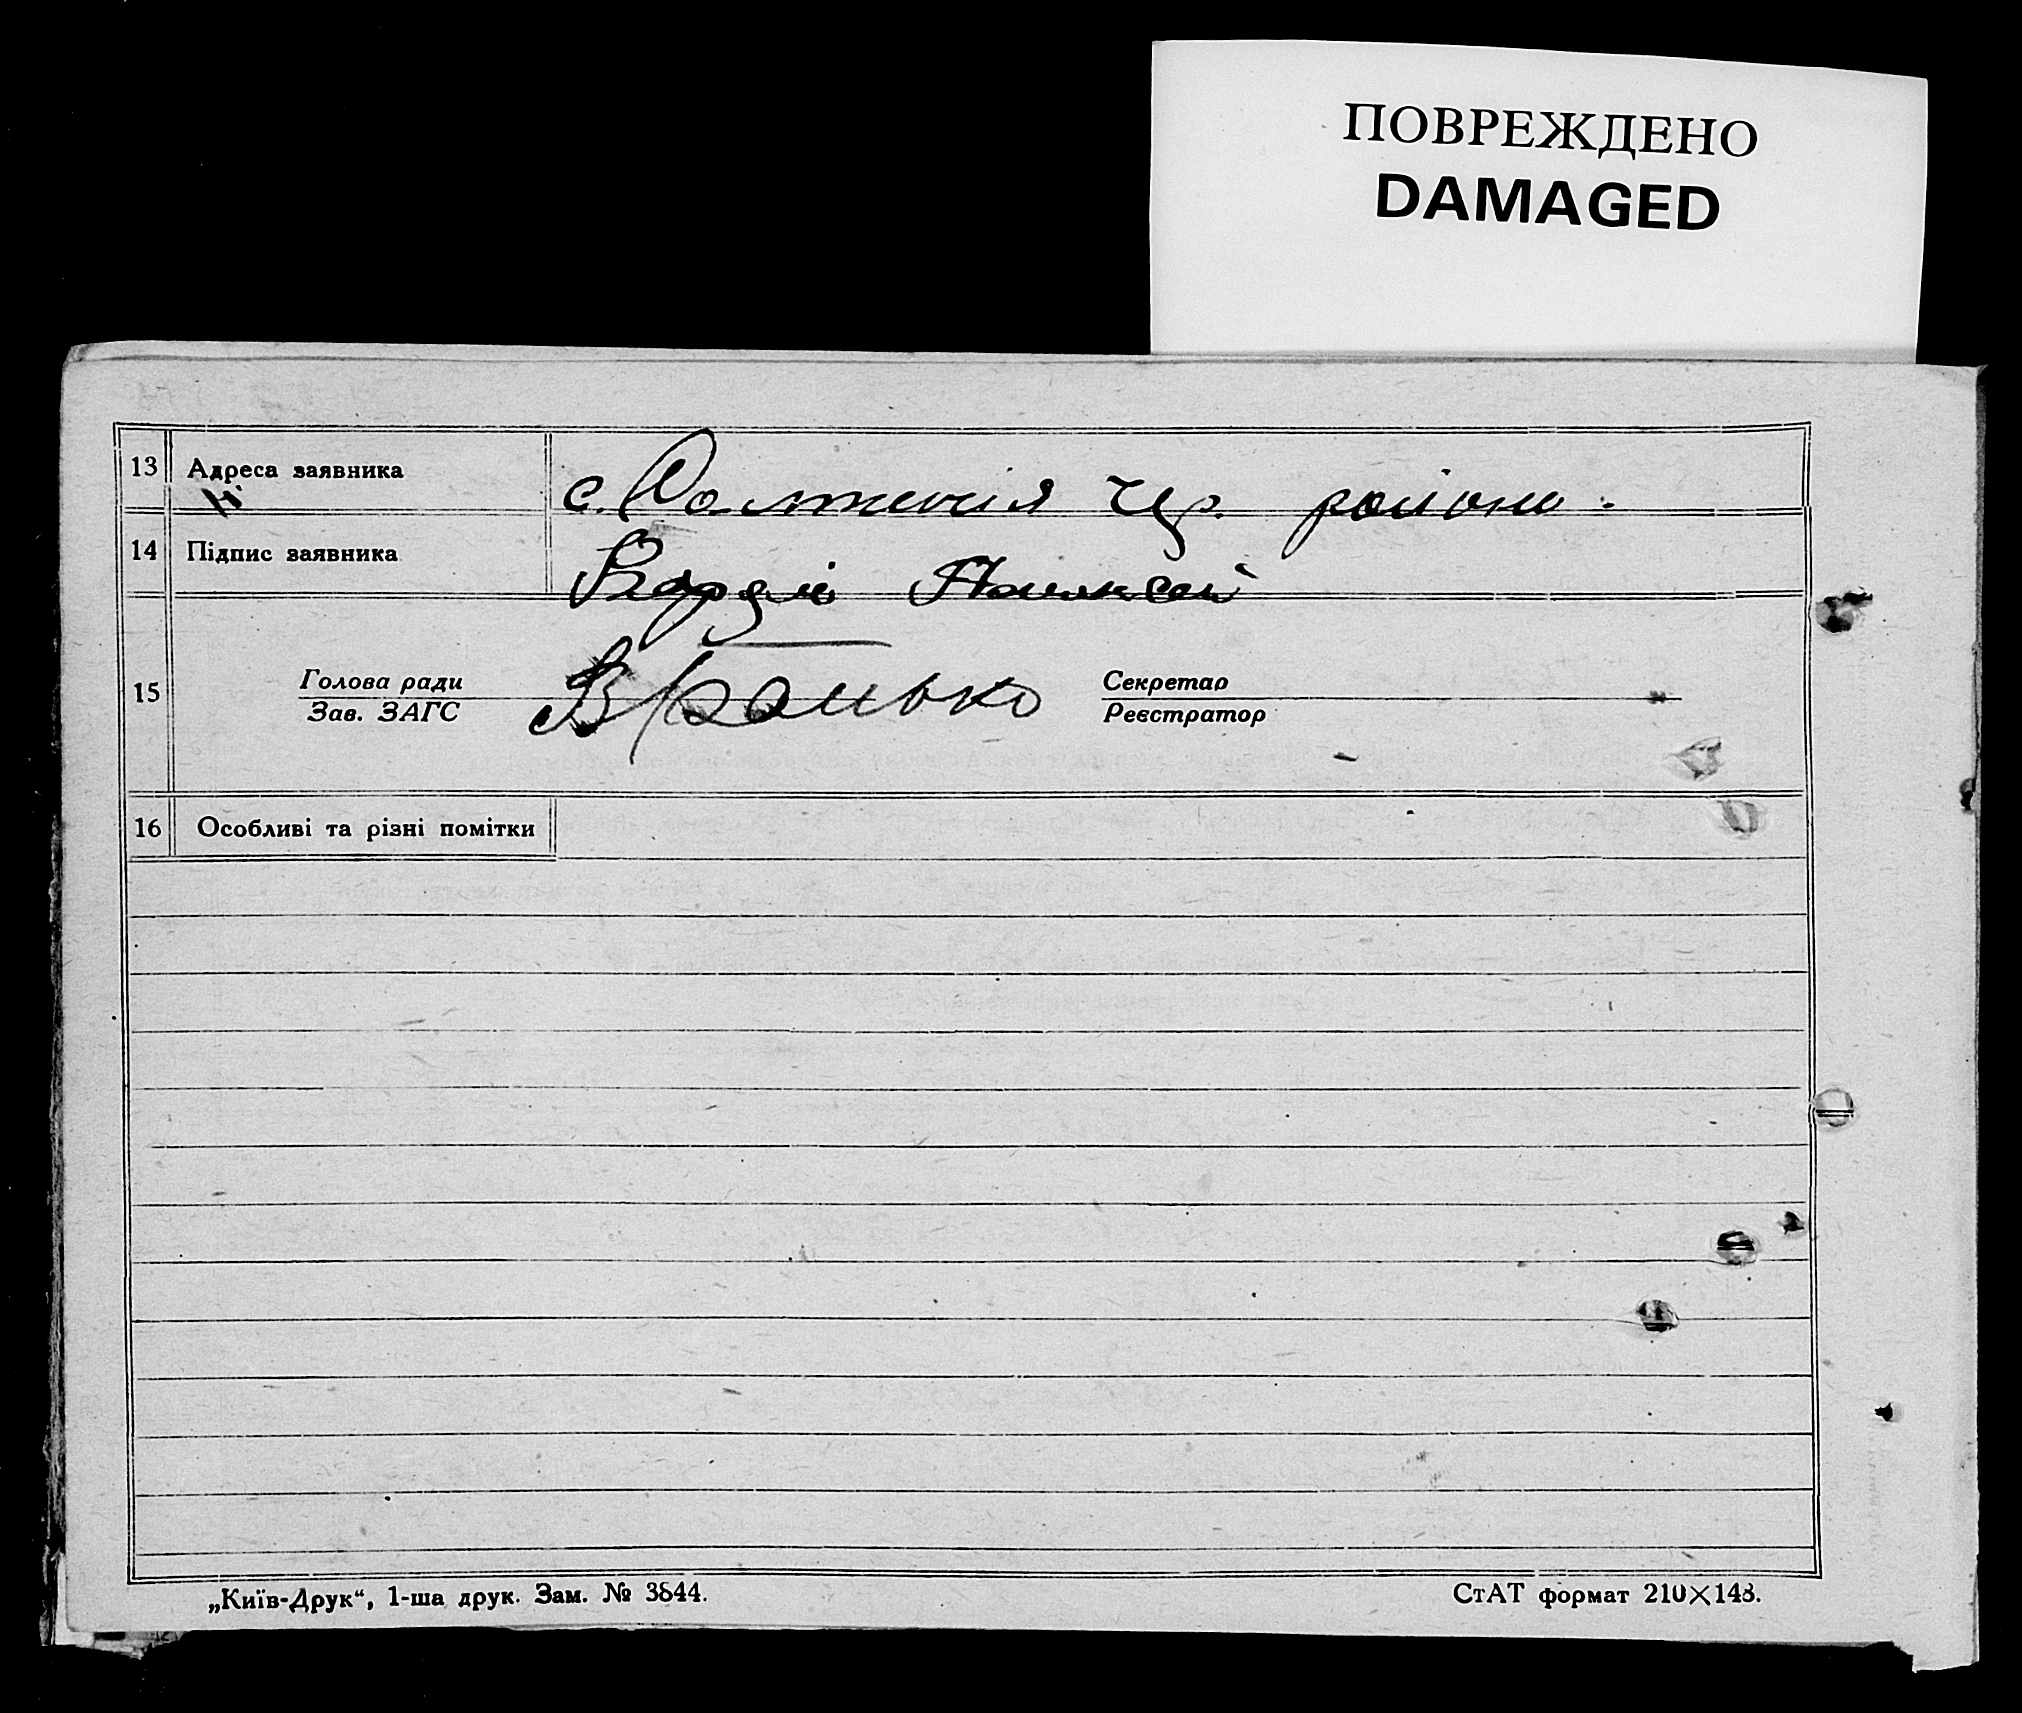 ПОВРЕЖДЕНО
DAMAGED
13 Адреса заявника с. чер. району.
14 Підпис заявника
15 Голова ради Секретар
Зав. ЗАГС Реєстратор
16 Особливі та різні помітки
„Київ-Друк“, 1-ша друк. Зам. № 3844.
СтАТ формат 210×148.